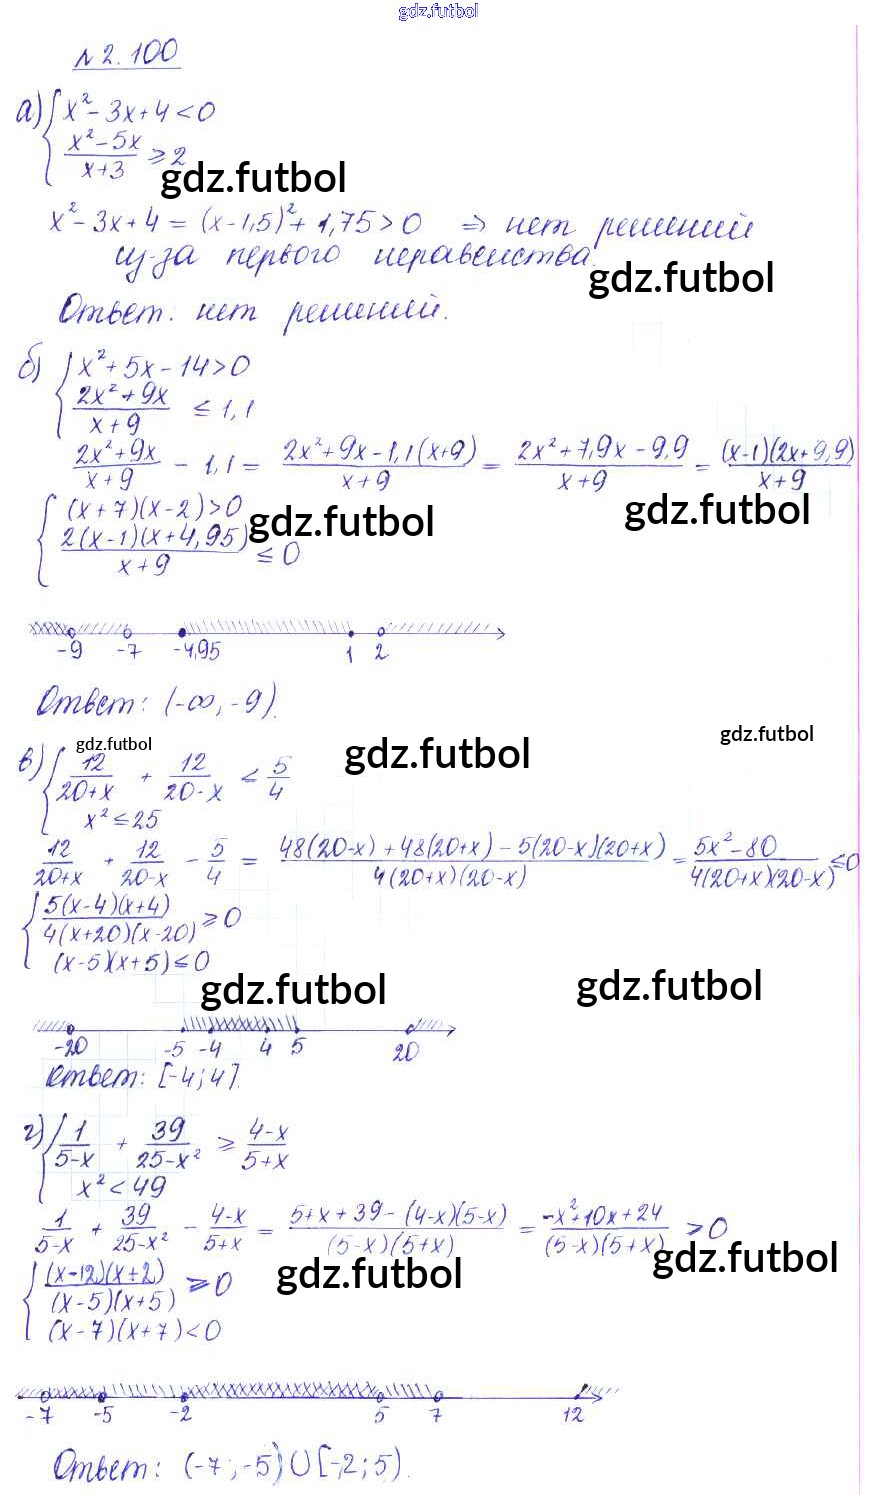 gdz.futbol
№ 2.100
а) { x² - 3x + 4 < 0
(x² - 5x)/(x + 3) ≥ 2
gdz.futbol
x² - 3x + 4 = (x - 1,5)² + 1,75 > 0 ⇒ нет решений
из-за первого неравенства.
gdz.futbol
Ответ: нет решений.
б) { x² + 5x - 14 > 0
(2x² + 9x)/(x + 9) ≤ 1,1
(2x² + 9x)/(x + 9) - 1,1 = (2x² + 9x - 1,1(x + 9))/(x + 9) = (2x² + 7,9x - 9,9)/(x + 9) = ((x - 1)(2x + 9,9))/(x + 9)
{ (x + 7)(x - 2) > 0
gdz.futbol gdz.futbol
(2(x - 1)(x + 4,95))/(x + 9) ≤ 0
-9 -7 -4,95 1 2
Ответ: (-∞, -9).
gdz.futbol gdz.futbol gdz.futbol
в) { 12/(20 + x) + 12/(20 - x) ≤ 5/4
x² ≤ 25
12/(20 + x) + 12/(20 - x) - 5/4 = (48(20 - x) + 48(20 + x) - 5(20 - x)(20 + x))/(4(20 + x)(20 - x)) = (5x² - 80)/(4(20 + x)(20 - x)) ≤ 0
{ (5(x - 4)(x + 4))/(4(x + 20)(x - 20)) ≥ 0
(x - 5)(x + 5) ≤ 0
gdz.futbol gdz.futbol
-20 -5 -4 4 5 20
Ответ: [-4; 4].
г) { 1/(5 - x) + 39/(25 - x²) ≥ (4 - x)/(5 + x)
x² < 49
1/(5 - x) + 39/(25 - x²) - (4 - x)/(5 + x) = (5 + x + 39 - (4 - x)(5 - x))/((5 - x)(5 + x)) = (-x² + 10x + 24)/((5 - x)(5 + x)) ≥ 0
gdz.futbol gdz.futbol
{ ((x - 12)(x + 2))/((x - 5)(x + 5)) ≥ 0
(x - 7)(x + 7) < 0
-7 -5 -2 5 7 12
Ответ: (-7; -5) ∪ [-2; 5).